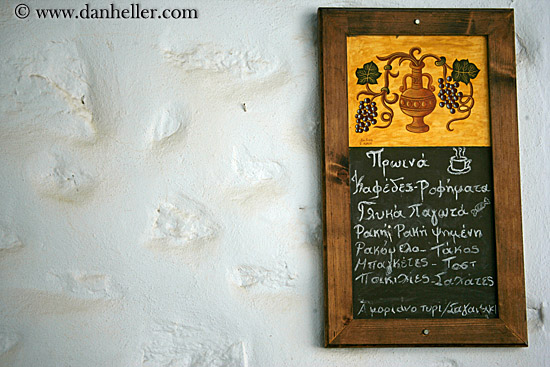 © www.danheller.com
Πρωινά
Καφέδες-Ροφήματα
Γλυκά Παγωτά
Ρακή Ρακή ψημένη
Ρακόμελο-Τάκος
Μπαγκέτες-Τοστ
Ποικιλίες-Σαλάτες